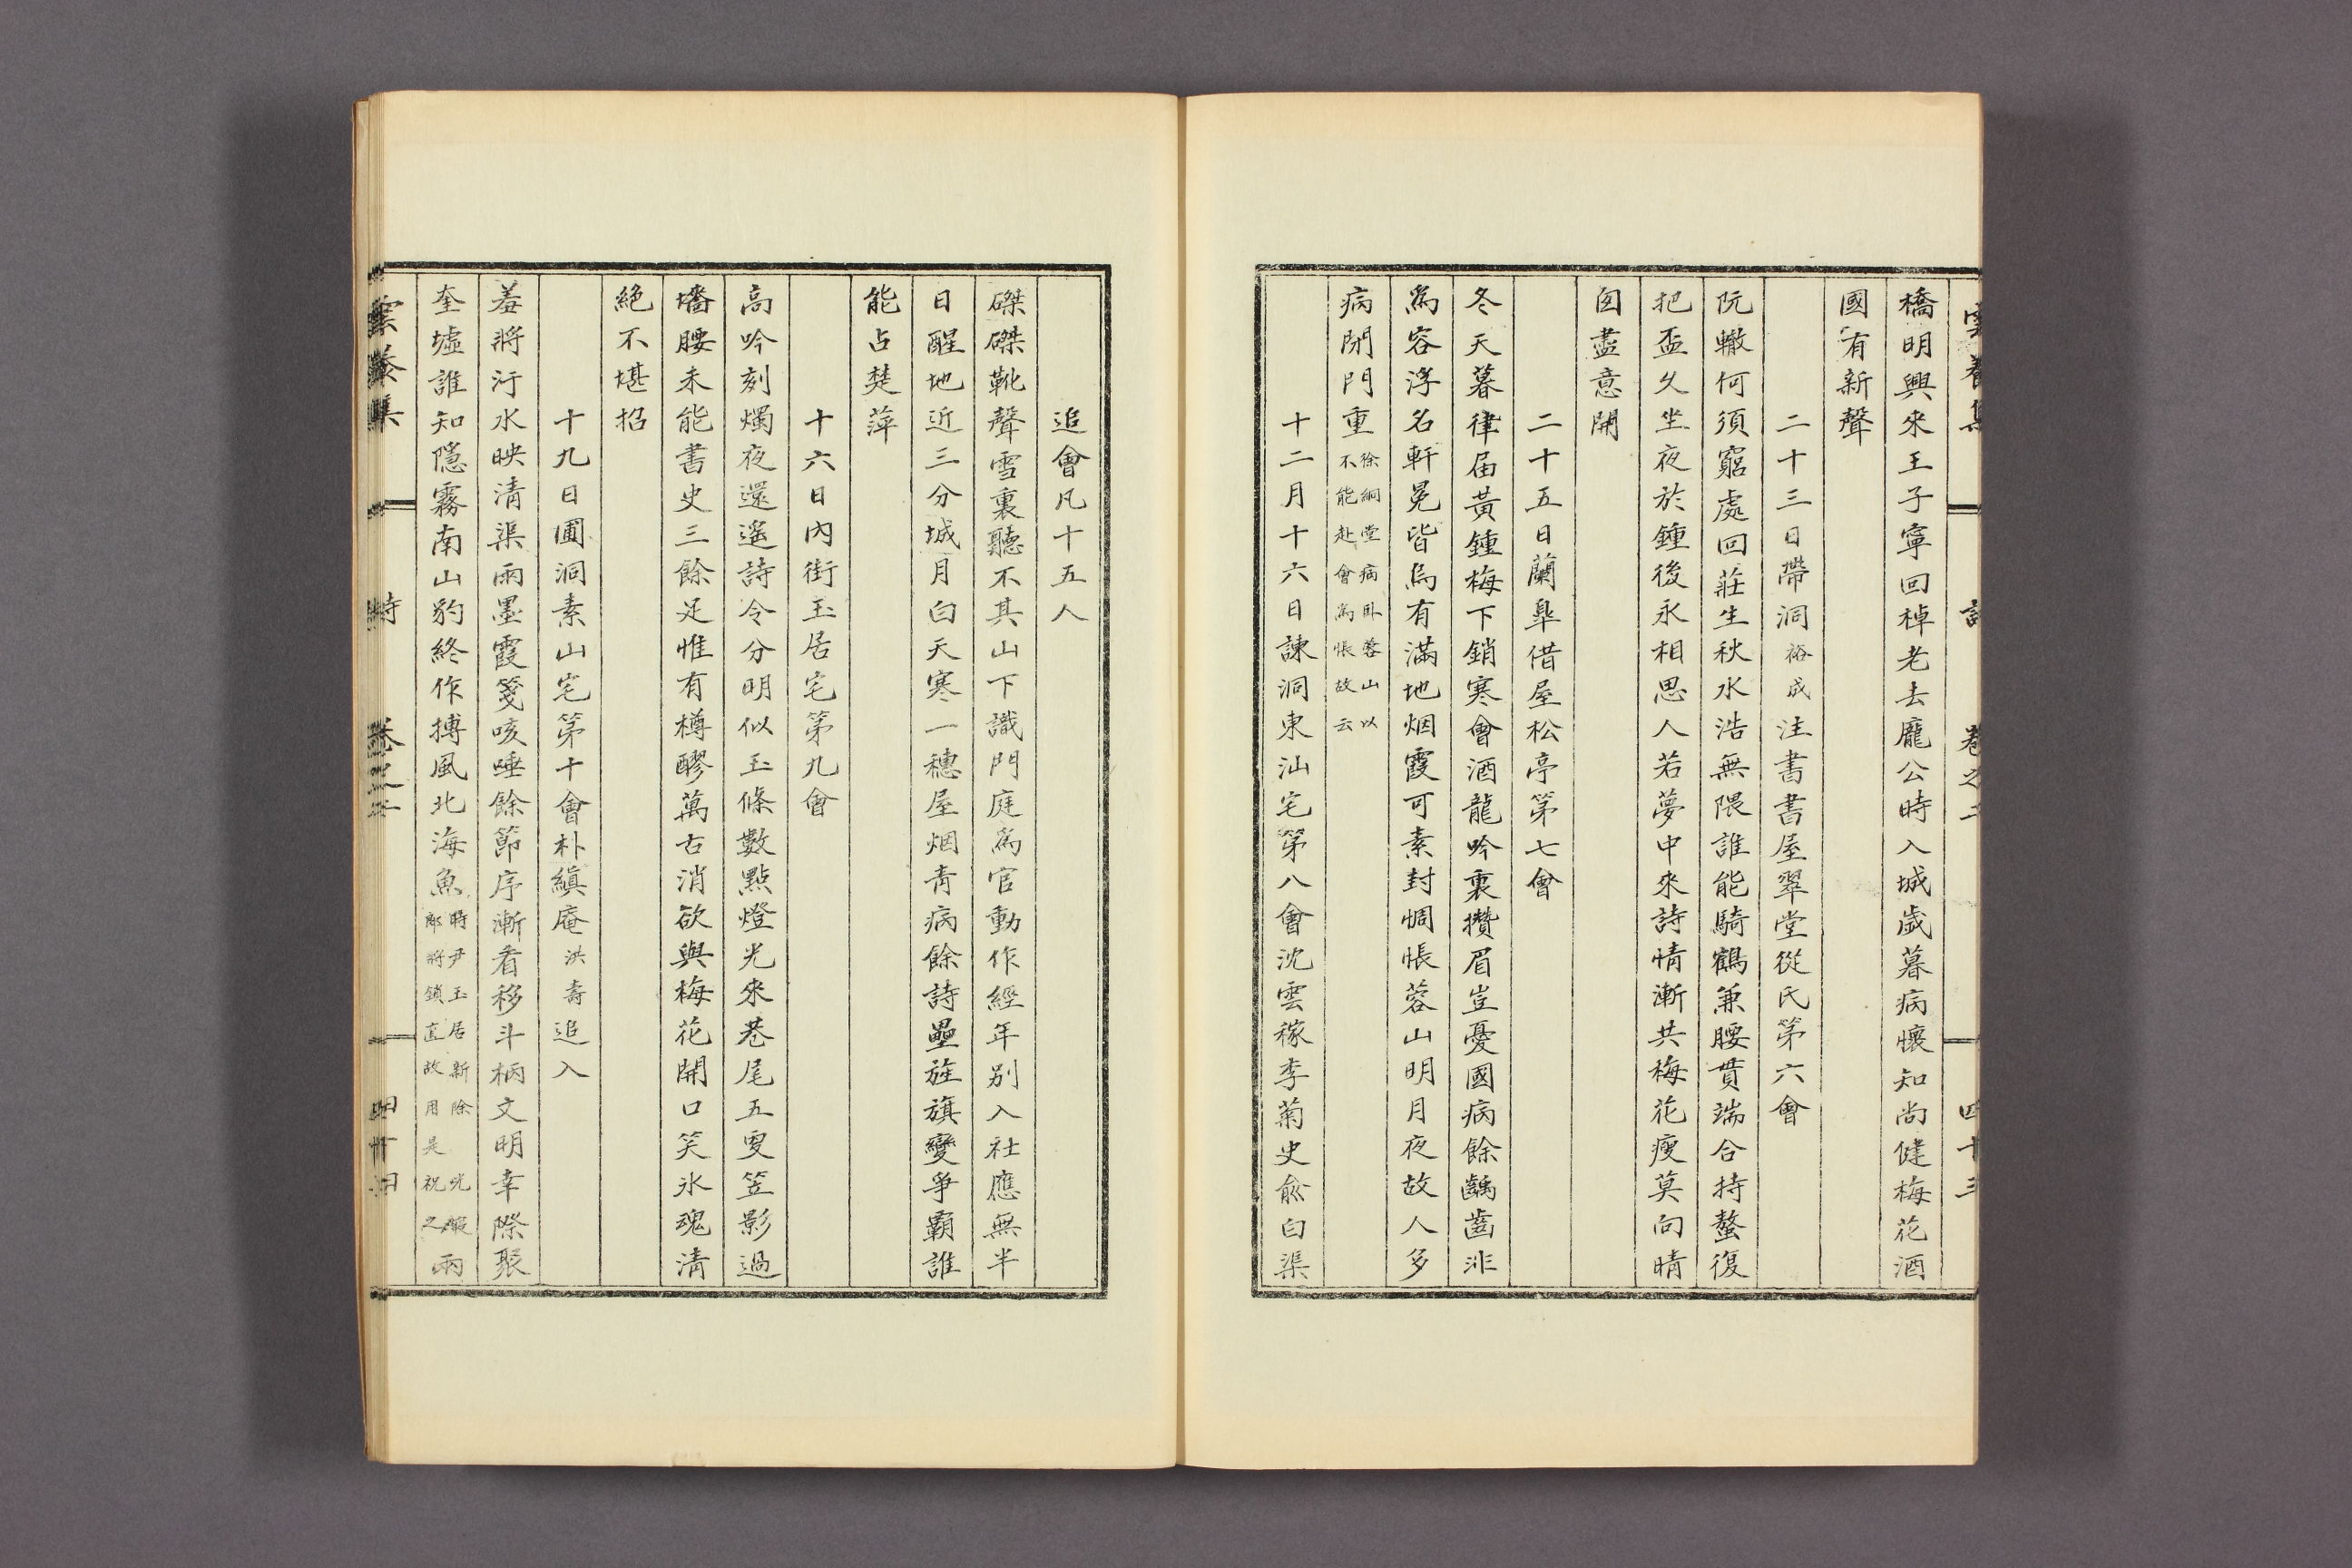 雲養集 詩 卷之二 四十三
橋明興來王子寧回棹老去龐公時入城歲暮病懷知尚健梅花酒
國有新聲
二十三日帶洞裕成注書書屋翠堂從氏第六會
阮轍何須窮處回莊生秋水浩無隈誰能騎鶴兼腰貫端合持螯復
把盃久坐夜於鍾後永相思人若夢中來詩情漸共梅花瘦莫向晴
囱盡意開
二十五日蘭臯借屋松亭第七會
冬天暮律届黃鍾梅下銷寒會酒龍吟裏攢眉豈憂國病餘齲齒非
爲容浮名軒冕皆烏有滿地烟霞可素封惆悵蓉山明月夜故人多
病閉門重徐絅堂病臥蓉山以
不能赴會爲悵故云
十二月十六日諫洞東汕宅第八會沈雲稼李菊史兪白渠
追會凡十五人
磔磔靴聲雪裏聽不其山下識門庭爲官動作經年別入社應無半
日醒地近三分城月白天寒一穗屋烟青病餘詩壘旌旗變爭霸誰
能占楚萍
十六日內街玉居宅第九會
高吟刻燭夜還遙詩令分明似玉條數點燈光來巷尾五更笠影過
墻腰未能書史三餘足惟有樽醪萬古消欲與梅花開口笑氷魂清
絶不堪招
十九日圃洞素山宅第十會朴縝庵洪壽追入
羞將汙水映清渠雨墨霞箋咳唾餘節序漸看移斗柄文明幸際聚
奎墟誰知隱霧南山豹終作搏風北海魚時尹玉居新除 光
郞將鎖直故用是祝之兩
雲養集 詩 卷之二 四十四